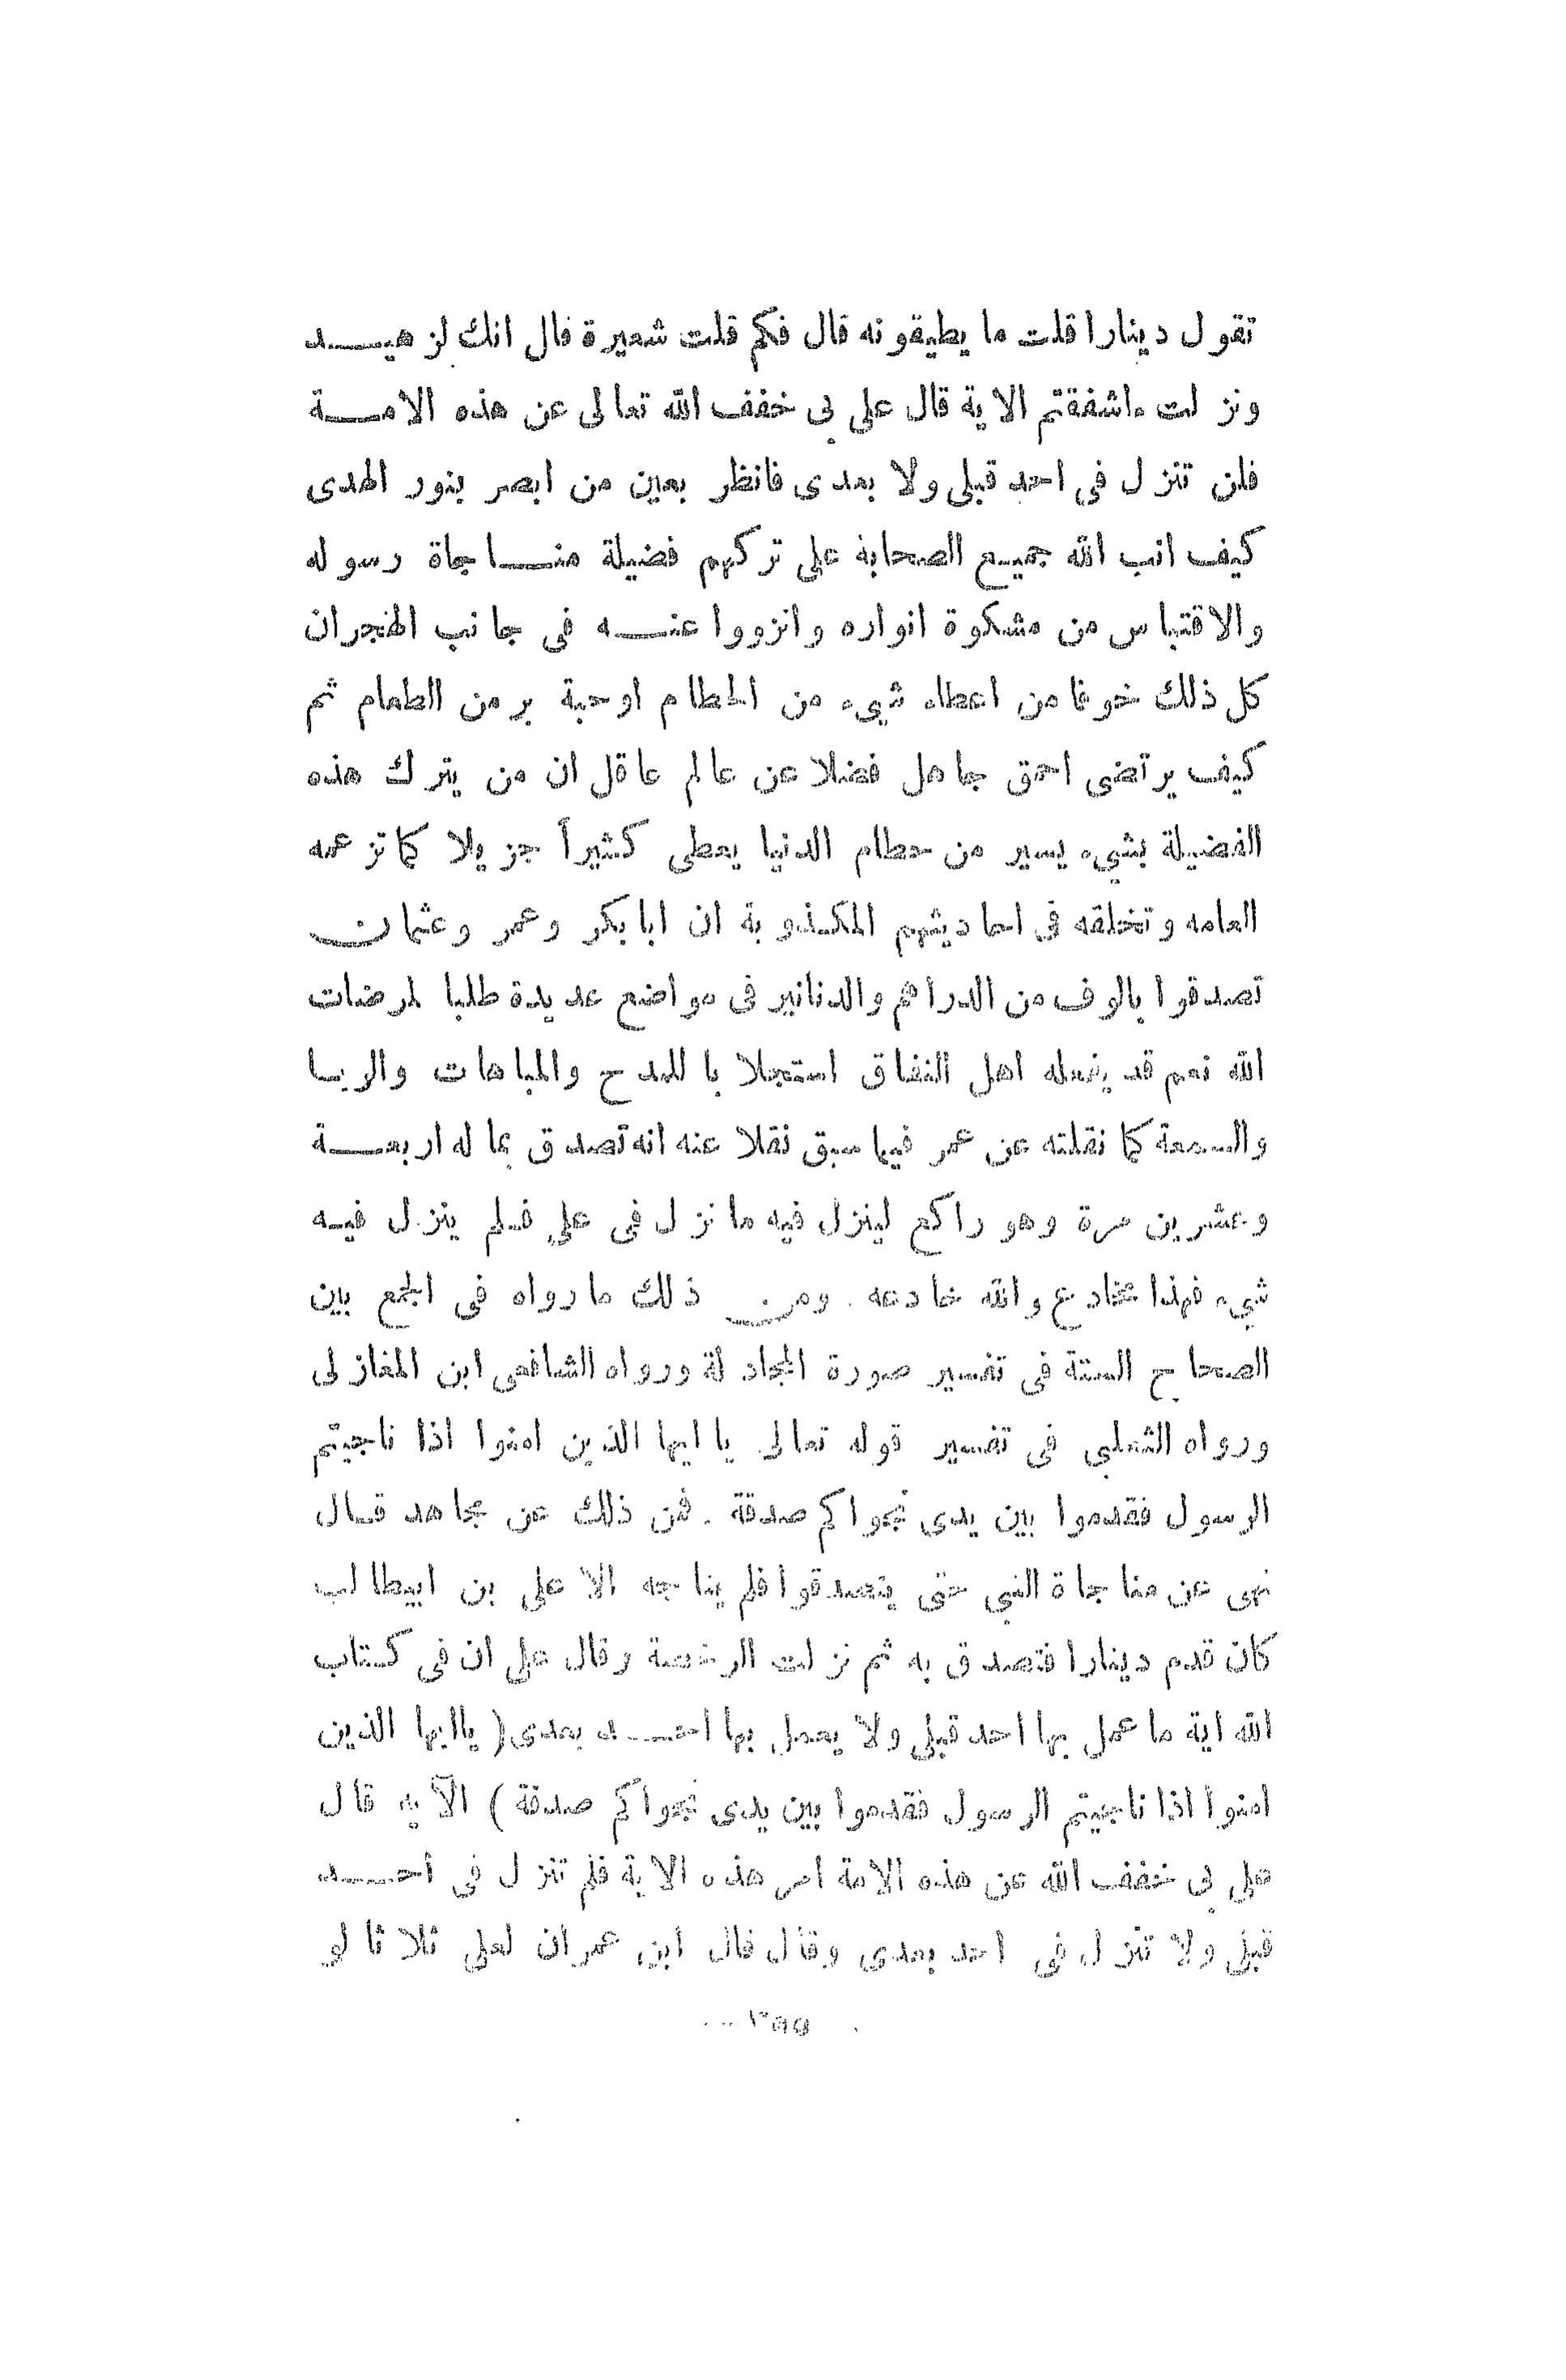 تقول دينارا قلت ما يطيقونه قال فكم قلت شعيرة قال انك لزهيد
ونزلت ءاشفقتم الاية قال علي بي خفف الله تعالى عن هذه الامة
فلن تنزل في احد قبلي ولا بعدى فانظر بعين من ابصر بنور الهدى
كيف انب الله جميع الصحابة على تركهم فضيلة مناجاة رسوله
والاقتباس من مشكوة انواره وانزووا عنه في جانب الهجران
كل ذلك خوفا من اعطاء شيء من الحطام اوحبة بر من الطعام ثم
كيف يرتضى احمق جاهل فضلا عن عالم عاقل ان من يترك هذه
الفضيلة بشيء يسير من حطام الدنيا يعطى كثيراً جزيلا كما تزعمه
العامه وتختلقه في احاديثهم المكذوبة ان ابا بكر وعمر وعثمان
تصدقوا بالوف من الدراهم والدنانير في مواضع عديدة طلبا لمرضات
الله نعم قد يفعله اهل النفاق استجلابا للمدح والمباهات والريا
والسمعة كما نقلته عن عمر فيما سبق نقلا عنه انه تصدق بما له اربعة
وعشرين مرة وهو راكع لينزل فيه ما نزل في علي فلم ينزل فيه
شيء فهذا مخادع والله خادعه . ومن ذلك ما رواه في الجمع بين
الصحاح الستة في تفسير صورة المجادلة ورواه الشافعي ابن المغازلي
ورواه الثعلبي في تفسير قوله تعالى يا ايها الذين امنوا اذا ناجيتم
الرسول فقدموا بين يدى نجواكم صدقة . فمن ذلك عن مجاهد قال
نهى عن مناجاة النبي حتى يتصدقوا فلم يناجه الا على بن ابيطالب
كان قدم دينارا فتصدق به ثم نزلت الرخصة وقال علي ان في كتاب
الله اية ما عمل بها احد قبلي ولا يعمل بها احد بعدى (ياايها الذين
امنوا اذا ناجيتم الرسول فقدموا بين يدى نجواكم صدقة) الآيه قال
علي بي خفف الله عن هذه الامة امر هذه الاية فلم تنزل في احد
قبلي ولا تنزل في احد بعدى وقال قال ابن عمران لعلي ثلاثا لو